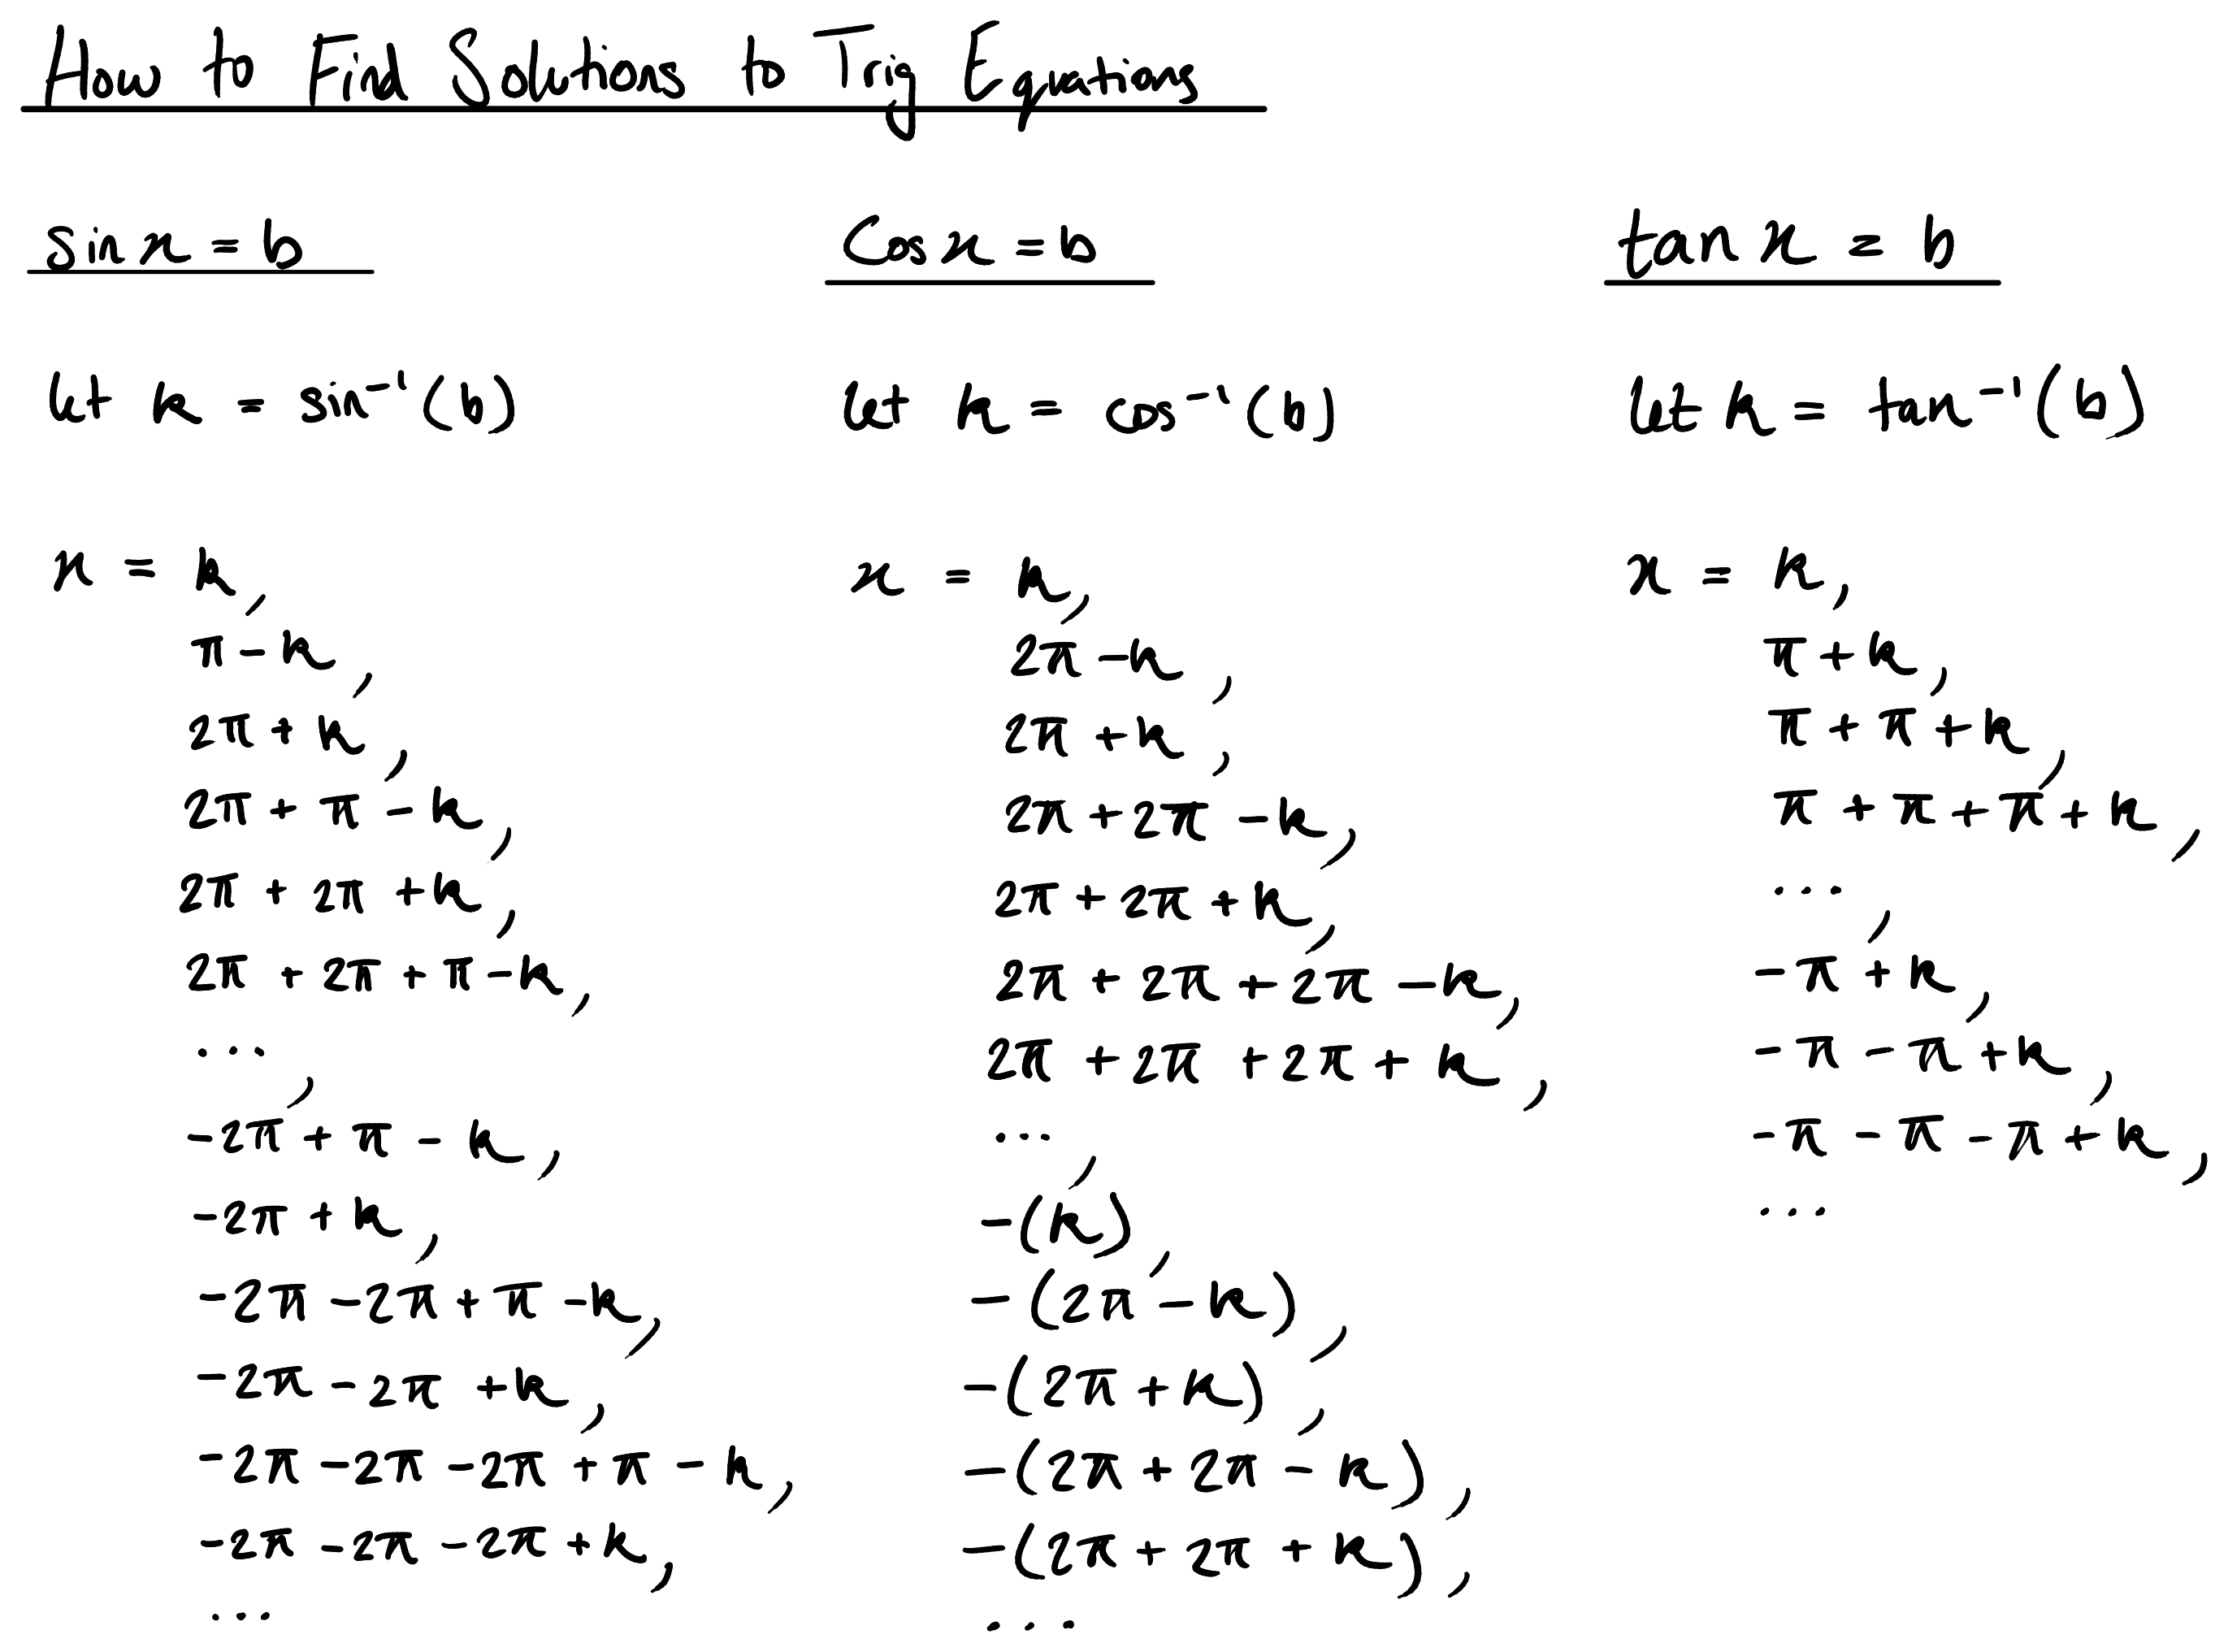 How to Find Solutions to Trig Equations
sin x = b
let k = sin⁻¹(b)
x = k,
π - k,
2π + k,
2π + π - k,
2π + 2π + k,
2π + 2π + π - k,
...,
-2π + π - k,
-2π + k,
-2π - 2π + π - k,
-2π - 2π + k,
-2π - 2π - 2π + π - k,
-2π - 2π - 2π + k,
...
Cos x = b
let k = cos⁻¹(b)
x = k,
2π - k,
2π + k,
2π + 2π - k,
2π + 2π + k,
2π + 2π + 2π - k,
2π + 2π + 2π + k,
...,
-(k),
-(2π - k),
-(2π + k),
-(2π + 2π - k),
-(2π + 2π + k),
...
tan x = b
let k = tan⁻¹(b)
x = k,
π + k,
π + π + k,
π + π + π + k,
...,
-π + k,
-π - π + k,
-π - π - π + k,
...